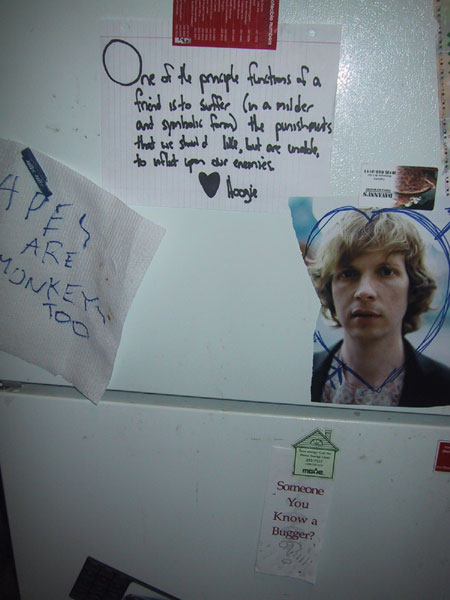 One of the principle functions of a
friend is to suffer (in a milder
and symbolic form) the punishments
that we should like, but are unable,
to inflict upon our enemies.
Hoogie
APES
ARE
MONKEYS
TOO
Someone
You
Know a
Bugger?